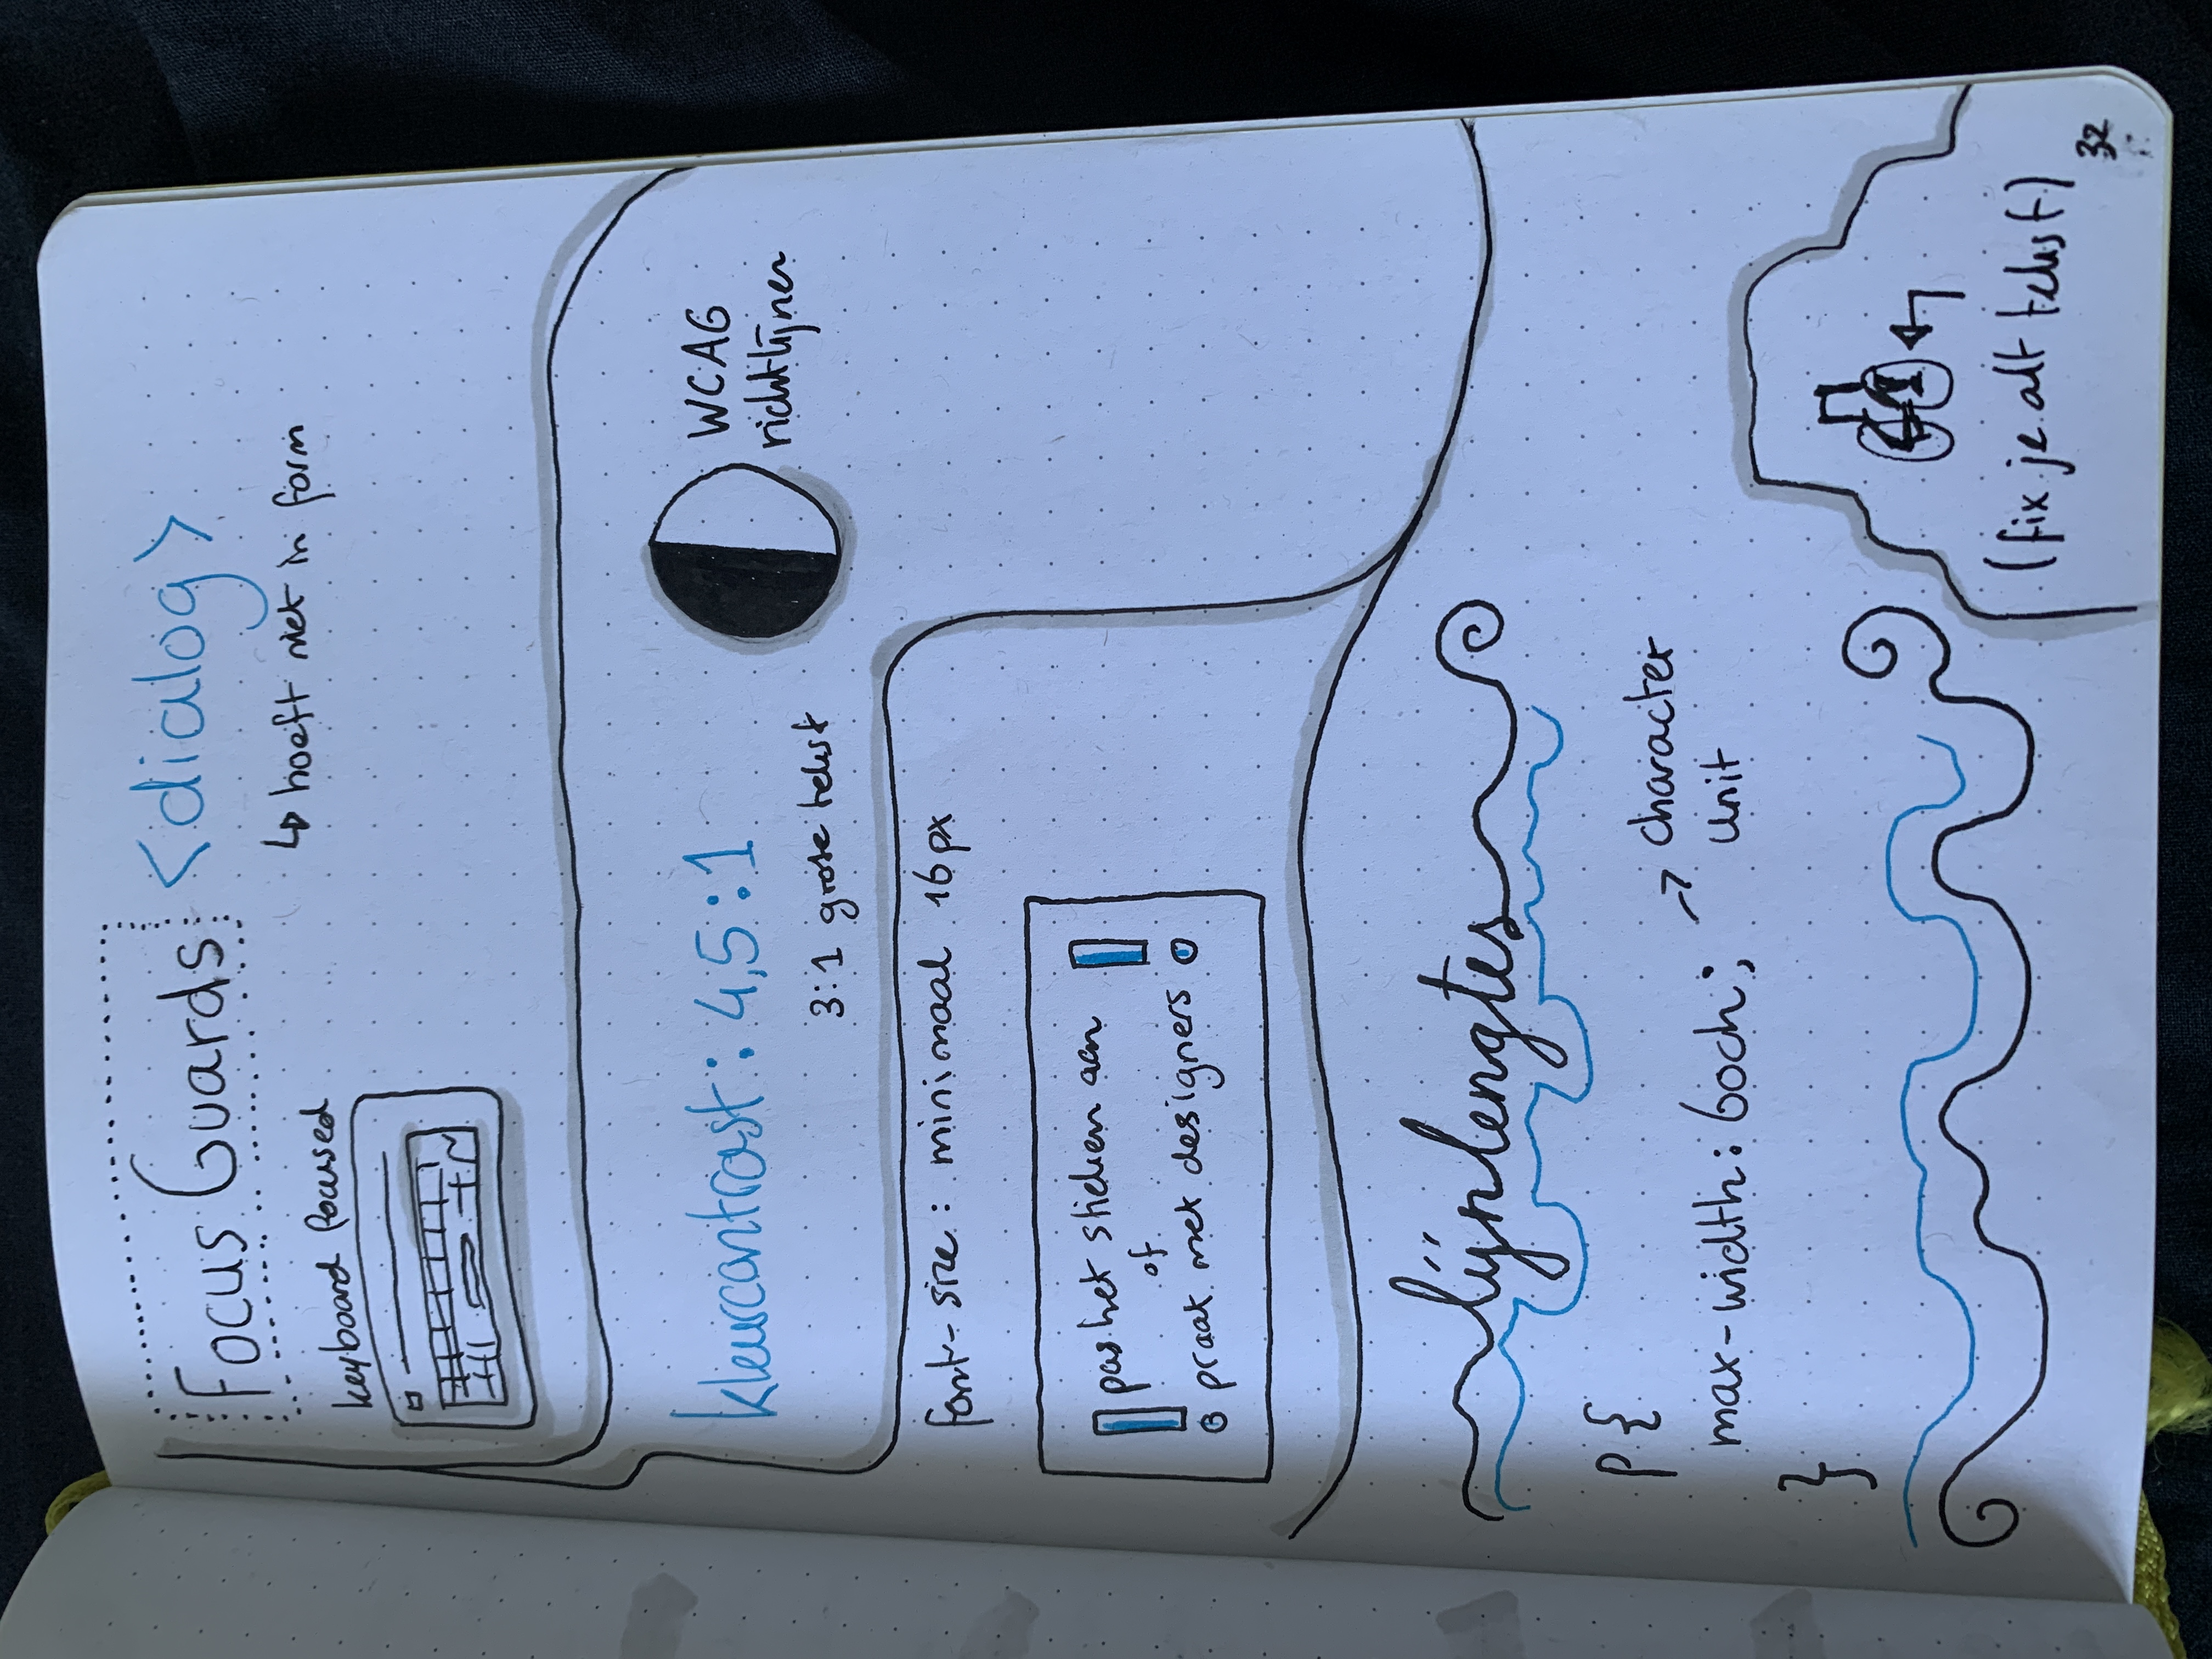 Focus Guards
<dialog>
↳ hoeft niet in form
keyboard focused
kleurcontrast: 4,5:1
3:1 grote tekst
WCAG
richtlijnen
font-size: minimaal 16px
pas het stieken aan
of
praat met designers
lijnlengtes
p{
max-width: 60ch;
→ character
unit
}
(fix je alt tekst)
32